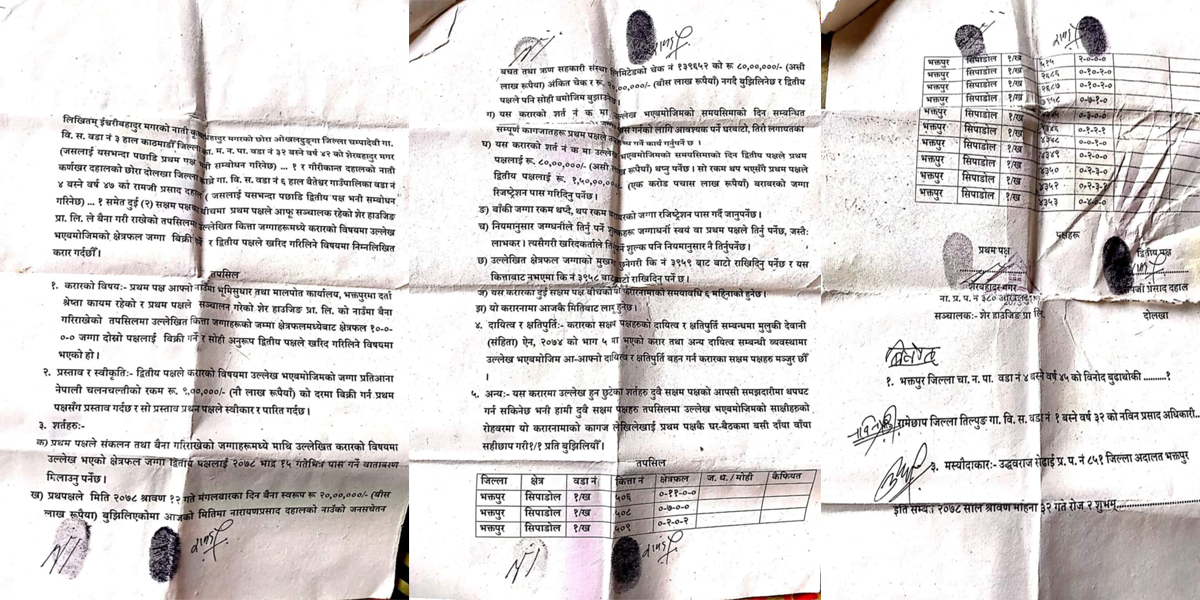 लिखितम् ईश्वरीबहादुर मगरको नाती कृष्णबहादुर मगरको छोरा ओखलढुङ्गा जिल्ला चम्पादेवी गा.
वि. स. वडा नं ३ हाल काठमाडौँ जिल्ला का. म. न. पा. वडा नं ३२ बस्ने वर्ष ४२ को शेरबहादुर मगर
(जसलाई यसभन्दा पछाडि प्रथम पक्ष भनी सम्बोधन गरिनेछ) ... १ र गौरीकान्त दहालको नाती
कर्णखर दाहालको छोरा दोलखा जिल्ला गा. वि. स. वडा नं ६ हाल बैतेश्वर गाउँपालिका वडा नं
४ बस्ने वर्ष ४७ को रामजी प्रसाद दहाल ( जसलाई यसभन्दा पछाडि द्वितीय पक्ष भनी सम्बोधन
गरिनेछ) ... १ समेत दुई (२) सक्षम पक्षबीचमा प्रथम पक्षले आफू सञ्चालक रहेको शेर हाउजिङ
प्रा. लि. ले बैना गरी राखेको तपसिलमा उल्लेखित कित्ता जग्गाहरूमध्ये करारको विषयमा उल्लेख
भएबमोजिमको क्षेत्रफल जग्गा बिक्री गर्ने र द्वितीय पक्षले खरिद गरिलिने विषयमा निम्नलिखित
करार गर्दछौँ।
तपसिल
१. करारको विषय:- प्रथम पक्ष आफ्नो नाउँमा भूमिसुधार तथा मालपोत कार्यालय, भक्तपुरमा दर्ता
श्रेष्ता कायम रहेको र प्रथम पक्षले सञ्चालन गरेको शेर हाउजिङ प्रा. लि. को नाउँमा बैना
गरिराखेको तपसिलमा उल्लेखित कित्ता जग्गाहरूको जम्मा क्षेत्रफलमध्येबाट क्षेत्रफल १०-०-
०-० जग्गा दोस्रो पक्षलाई बिक्री गर्ने र सोही अनुरूप द्वितीय पक्षले खरिद गरिलिने विषयमा
भएको हो।
२. प्रस्ताव र स्वीकृति:- द्वितीय पक्षले करारको विषयमा उल्लेख भएबमोजिमको जग्गा प्रतिआना
नेपाली चलनचल्तीको रकम रू. ९,००,०००/- (नौ लाख रूपैयाँ) को दरमा बिक्री गर्न प्रथम
पक्षसँग प्रस्ताव गर्दछ र सो प्रस्ताव प्रथम पक्षले स्वीकार र पारित गर्दछ।
३. शर्तहरु:-
क) प्रथम पक्षले संकलन तथा बैना गरिराखेको जग्गाहरूमध्ये माथि उल्लेखित करारको विषयमा
उल्लेख भएको क्षेत्रफल जग्गा द्वितीय पक्षलाई २०७८ भाद्र १५ गतेभित्र पास गर्ने वातावरण
मिलाउनु पर्नेछ।
ख) प्रथपक्षले मिति २०७८ श्रावण १२ गते मंगलबारका दिन बैना स्वरूप रू २०,००,०००/- (बीस
लाख रूपैया) बुझिलिएकोमा आजको मितिमा नारायणप्रसाद दहालको नाउँको जनसचेतन
बचत तथा ऋण सहकारी संस्था लिमिटेडको चेक नं १३९६५२ को रू ८०,००,०००/- (असी
लाख रूपैया) अंकित चेक र रू. २०,००,०००/- (बीस लाख रूपैयाँ) नगदै बुझिलिनेछ र द्वितीय
पक्षले पनि सोही बमोजिम बुझाउनेछ
ग) यस करारको शर्त नं क मा उल्लेख भएबमोजिमको समयसिमाको दिन सम्बन्धित
सम्पूर्ण कागजातहरू प्रथम पक्षले गर्नको लागि आवश्यक पर्ने घरबाटो, तिरो लगायतका
गर्ने कार्य गर्नुपर्नेछ ।
घ) यस करारको शर्त नं क मा उल्लेख भएबमोजिमको समयसिमाको दिन द्वितीय पक्षले प्रथम
पक्षलाई रू. ८०,००,०००/- (असी लाख रूपैयाँ) थप्नु पर्नेछ। सो रकम थप भएसँगै प्रथम पक्षले
द्वितीय पक्षलाई रू. १,५०,००,०००/- (एक करोड पचास लाख रूपैयाँ) बराबरको जग्गा
रजिष्ट्रेशन पास गरिदिनु पर्नेछ।
ङ) बाँकी जग्गा रकम थप्दै, थप रकम बराबरको जग्गा रजिष्ट्रेशन पास गर्दै जानुपर्नेछ।
च) नियमानुसार जग्गधनीले तिर्नु पर्ने शुल्कहरू जग्गाधनी स्वयं वा प्रथम पक्षले तिर्नु पर्नेछ, जस्तै:
लाभकर। त्यसैगरी खरिदकर्ताले तिर्नुपर्ने शुल्क पनि नियमानुसार नै तिर्नुपर्नेछ।
छ) उल्लेखित क्षेत्रफल जग्गाको मुख्य कि नं ३९५९ बाट बाटो राखिदिनु पर्नेछ र यस
कित्ताबाट नभएमा कि नं ३९५८ बाट बाटो राखिदिनु पर्नेछ।
ज) यस करारका दुई सक्षम पक्ष बीचको करारनामाको समयावधि ६ महिनाको हुनेछ।
झ) यो करारनामा आजकै मितिबाट लागु हुनेछ।
४. दायित्व र क्षतिपुर्ति:- करारका सक्षम पक्षहरुको दायित्व र क्षतिपुर्ति सम्बन्धमा मुलुकी देवानी
(संहिता) ऐन, २०७४ को भाग ५ मा भएको करार तथा अन्य दायित्व सम्बन्धी व्यवस्थामा
उल्लेख भएबमोजिम आ-आफ्नो दायित्व र क्षतिपुर्ति बहन गर्न करारका सक्षम पक्षहरु मञ्जुर छौँ
।
५. अन्य:- यस करारमा उल्लेख हुन छुटेका शर्तहरु दुवै सक्षम पक्षको आपसी समझदारीमा थपघट
गर्न सकिनेछ भनी हामी दुवै सक्षम पक्षहरु तपसिलमा उल्लेख भएबमोजिमका साक्षीहरुको
रोहवरमा यो करारनामाको कागज लेखिलेखाई प्रथम पक्षकै घर-बैठकमा बसी दाँया बाँया
सहीछाप गरी१/१ प्रति बुझिलियौँ।
तपसिल
जिल्ला क्षेत्र वडा नं कित्ता नं क्षेत्रफल ज. ध. / मोही कैफियत
भक्तपुर सिपाडोल १/ख ५०६ ०-११-०-०
भक्तपुर सिपाडोल १/ख ५०८ ०-७-०-०
भक्तपुर सिपाडोल १/ख ५०९ ०-२-०-२
भक्तपुर सिपाडोल १/ख ५१५ २-०-०-०
भक्तपुर सिपाडोल १/ख २६८६ ०-१०-२-०
भक्तपुर सिपाडोल १/ख २६८७ ०-१०-२-०
भक्तपुर सिपाडोल १/ख ०-७-१-०
भक्तपुर सिपाडोल १/ख ०-३-०-०
भक्तपुर सिपाडोल १/ख ०-१-२-१
भक्तपुर सिपाडोल १/ख ४३४९ ०-०-१-०
भक्तपुर सिपाडोल १/ख ४३५० ०-२-०-०
भक्तपुर सिपाडोल १/ख ४३५२ ०-२-३-२
भक्तपुर सिपाडोल १/ख ४३५३ ०-४-०-०
पक्षहरू
प्रथम पक्ष द्वितीय पक्ष
शेरबहादुर मगर रामजी प्रसाद दहाल
ना. प्र. प. नं ३८० ओखलढुङ्गा दोलखा
सञ्चालक:- शेर हाउजिङ प्रा लि.
विनोद
१. भक्तपुर जिल्ला चा. न. पा. वडा नं ४ बस्ने वर्ष ४५ को विनोद बुढाथोकी ..........१
रामेछाप जिल्ला तिल्पुङ गा. वि. स. वडा नं १ बस्ने वर्ष ३२ को नविन प्रसाद अधिकारी..
३. मस्यौदाकार:- उद्धवराज सेढाई प्र. प. नं ८५१ जिल्ला अदालत भक्तपुर
इति सम्ब: २०७८ साल श्रावण महिना ३२ गते रोज २ शुभम्..............